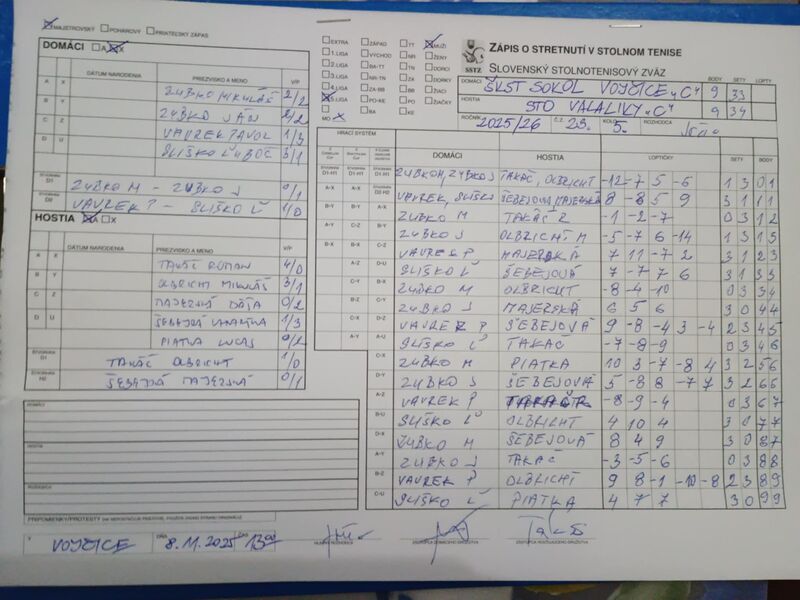 MAJSTROVSKÝ POHÁROVÝ PRIATEĽSKÝ ZÁPAS
DOMÁCI A X
DÁTUM NARODENIA PRIEZVISKO A MENO V/P
A X ZUBKO MIKULÁŠ 2/2
B Y ZUBKO JÁN 2/2
C Z VAVREK PAVOL 1/3
D U SLIŠKO ĽUBOŠ 3/1
D1 ZUBKO M - ZUBKO J 0/1
D2 VAVREK P - SLIŠKO Ľ 1/0
HOSTIA A X
DÁTUM NARODENIA PRIEZVISKO A MENO V/P
A X TAKÁČ ROMAN 4/0
B Y OLBRICHT MIKULÁŠ 3/1
C Z 0/2
D U 1/3
PIATKA LUCAS 0/2
D1 TAKÁČ OLBRICHT 1/0
0/1
DOMÁCI
HOSTIA
ROZHODCA
PRIPOMIENKY/PROTESTY
VOJČICE 8.11.2025 13:00
EXTRA ZÁPAD TT MUŽI
1. LIGA VÝCHOD NR ŽENY
2. LIGA BA-TT TN DORCI
3. LIGA NR-TN ZA DORKY
4. LIGA ZA-BB BB ŽIACI
5. LIGA PO-KE PO ŽIAČKY
BA KE
MO
SSTZ
ZÁPIS O STRETNUTÍ V STOLNOM TENISE
SLOVENSKÝ STOLNOTENISOVÝ ZVÄZ
BODY SETY LOPTY
DOMÁCI ŠKST SOKOL VOJČICE "C" 9 33
HOSTIA STO VALALIKY "C" 9 34
ROČNÍK 2025/26 Č.Z. 23. KOLO 5. ROZHODCA
HRACÍ SYSTÉM
DOMÁCI HOSTIA LOPTIČKY SETY BODY
ZUBKO M, ZUBKO J TAKÁČ, OLBRICHT -12 -7 5 -6 1 3 0 1
VAVREK, SLIŠKO ŠEBEJOVÁ, MAJERSKÁ 8 -8 5 9 3 1 1 1
ZUBKO M TAKÁČ R -1 -2 -7 0 3 1 2
ZUBKO J OLBRICHT M -5 -7 6 -14 1 3 1 3
VAVREK P MAJERSKÁ 7 11 -7 2 3 1 2 3
SLIŠKO Ľ ŠEBEJOVÁ 7 -7 7 6 3 1 3 3
ZUBKO M OLBRICHT -8 -4 -10 0 3 3 4
ZUBKO J MAJERSKÁ 6 5 6 3 0 4 4
VAVREK P ŠEBEJOVÁ 9 -8 -4 3 -4 2 3 4 5
SLIŠKO Ľ TAKÁČ -7 -8 -9 0 3 4 6
ZUBKO M PIATKA 10 3 -7 -8 4 3 2 5 6
ZUBKO J ŠEBEJOVÁ 5 -8 8 -7 7 3 2 6 6
VAVREK P -8 -9 -4 0 3 6 7
SLIŠKO Ľ OLBRICHT 4 10 4 3 0 7 7
ZUBKO M ŠEBEJOVÁ 8 4 9 3 0 8 7
ZUBKO J TAKÁČ -3 -5 -6 0 3 8 8
VAVREK P OLBRICHT 9 8 -1 -10 -8 2 3 8 9
SLIŠKO Ľ PIATKA 4 7 7 3 0 9 9